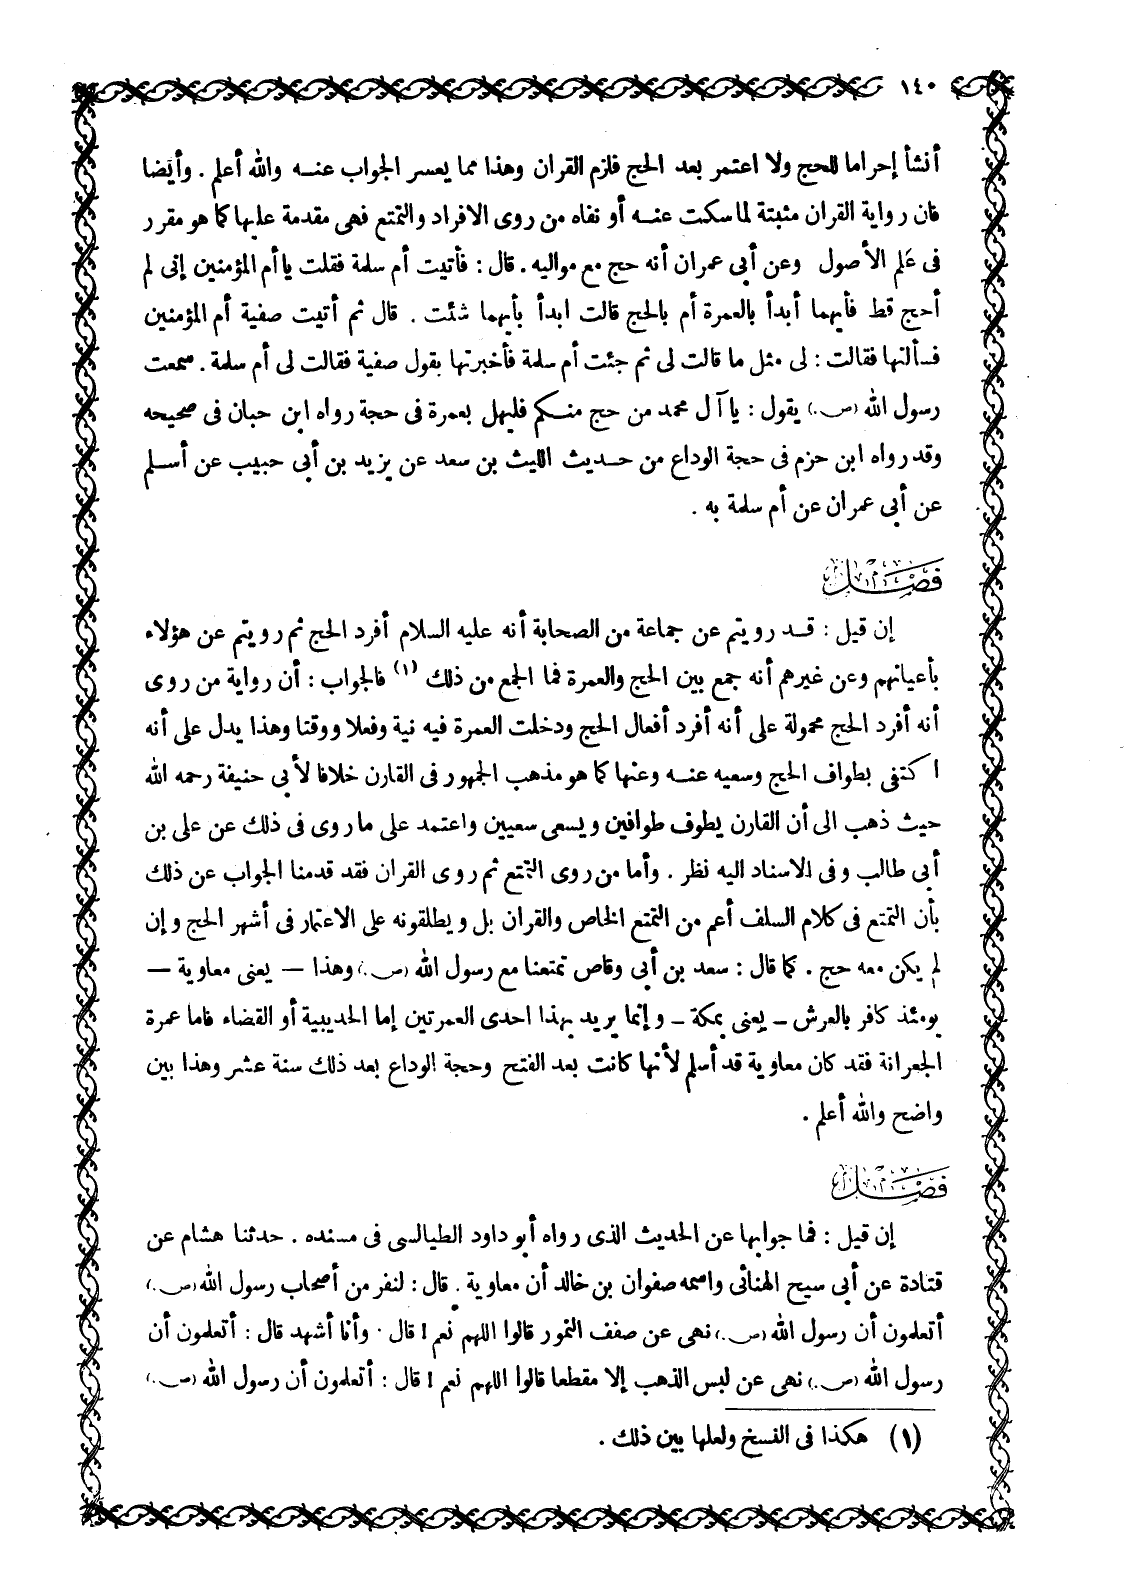 ١٤٠
أنشأ إحراما للحج ولا اعتمر بعد الحج فلزم القران وهذا مما يعسر الجواب عنه والله أعلم . وأيضا
فان رواية القران مثبتة لما سكت عنه أو نفاه من روى الافراد والتمتع فهى مقدمة عليها كما هو مقرر
فى علم الأصول وعن أبى عمران أنه حج مع مواليه . قال : فأتيت أم سلمة فقلت يا أم المؤمنين إنى لم
أحج قط فأيهما أبدأ بالعمرة أم بالحج قالت ابدأ بأيهما شئت . قال ثم أتيت صفية أم المؤمنين
فسألتها فقالت : لى مثل ما قالت لى ثم جئت أم سلمة فأخبرتها بقول صفية فقالت لى أم سلمة . سمعت
رسول الله (ص.) يقول : يا آل محمد من حج منكم فليهل بعمرة فى حجة رواه ابن حبان فى صحيحه
وقد رواه ابن حزم فى حجة الوداع من حديث الليث بن سعد عن يزيد بن أبى حبيب عن أسلم
عن أبى عمران عن أم سلمة به .
فصل
إن قيل : قد رويتم عن جماعة من الصحابة أنه عليه السلام أفرد الحج ثم رويتم عن هؤلاء
بأعيانهم وعن غيرهم أنه جمع بين الحج والعمرة فما الجمع من ذلك (١) فالجواب : أن رواية من روى
أنه أفرد الحج محمولة على أنه أفرد أفعال الحج ودخلت العمرة فيه نية وفعلا ووقتا وهذا يدل على أنه
ا كتفى بطواف الحج وسعيه عنه وعنها كما هو مذهب الجمهور فى القارن خلافا لأبى حنيفة رحمه الله
حيث ذهب الى أن القارن يطوف طوافين ويسعى سعيين واعتمد على ما روى فى ذلك عن على بن
أبى طالب وفى الاسناد اليه نظر . وأما من روى التمتع ثم روى القران فقد قدمنا الجواب عن ذلك
بأن التمتع فى كلام السلف أعم من التمتع الخاص والقران بل ويطلقونه على الاعتمار فى أشهر الحج وإن
لم يكن معه حج . كما قال : سعد بن أبى وقاص تمتعنا مع رسول الله (ص.) وهذا — يعنى معاوية —
يومئذ كافر بالعرش ــ يعنى بمكة ــ وإنما يريد بهذا احدى العمرتين إما الحديبية أو القضاء فاما عمرة
الجعرانة فقد كان معاوية قد أسلم لأنها كانت بعد الفتح وحجة الوداع بعد ذلك سنة عشر وهذا بين
واضح والله أعلم .
فصل
إن قيل : فما جوابها عن الحديث الذى رواه أبو داود الطيالسى فى مسنده . حدثنا هشام عن
قتادة عن أبى سيح الهنائى واسمه صفوان بن خالد أن معاوية . قال : لنفر من أصحاب رسول الله (ص.)
أتعلمون أن رسول الله (ص.) نهى عن صفف النمور قالوا اللهم نعم ! قال . وأنا أشهد قال : أتعلمون أن
رسول الله (ص.) نهى عن لبس الذهب إلا مقطعا قالوا اللهم نعم ! قال : أتعلمون أن رسول الله (ص.)
(١) هكذا فى النسخ ولعلها بين ذلك .